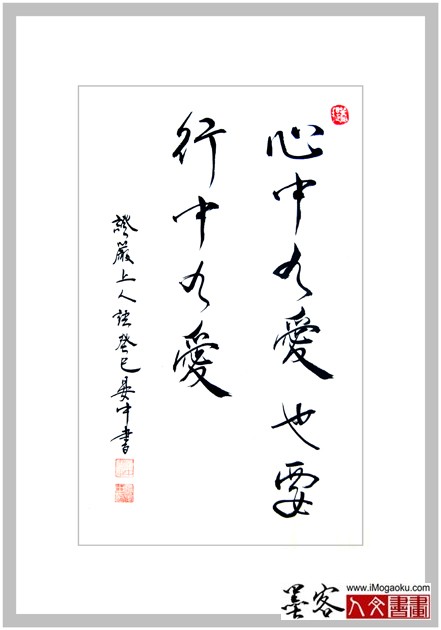 心中有愛也要
行中有愛
證嚴上人語癸巳晏中書
墨客
www.iMogaoku.com
人文書畫